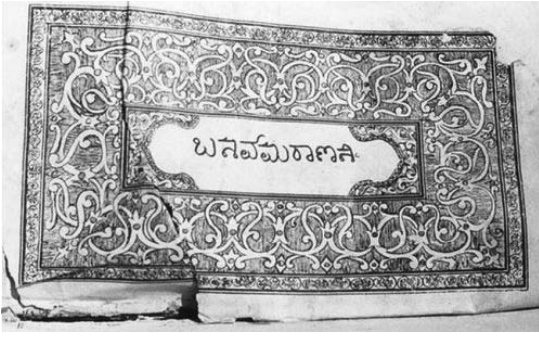 ಬಸವಪುರಾಣ